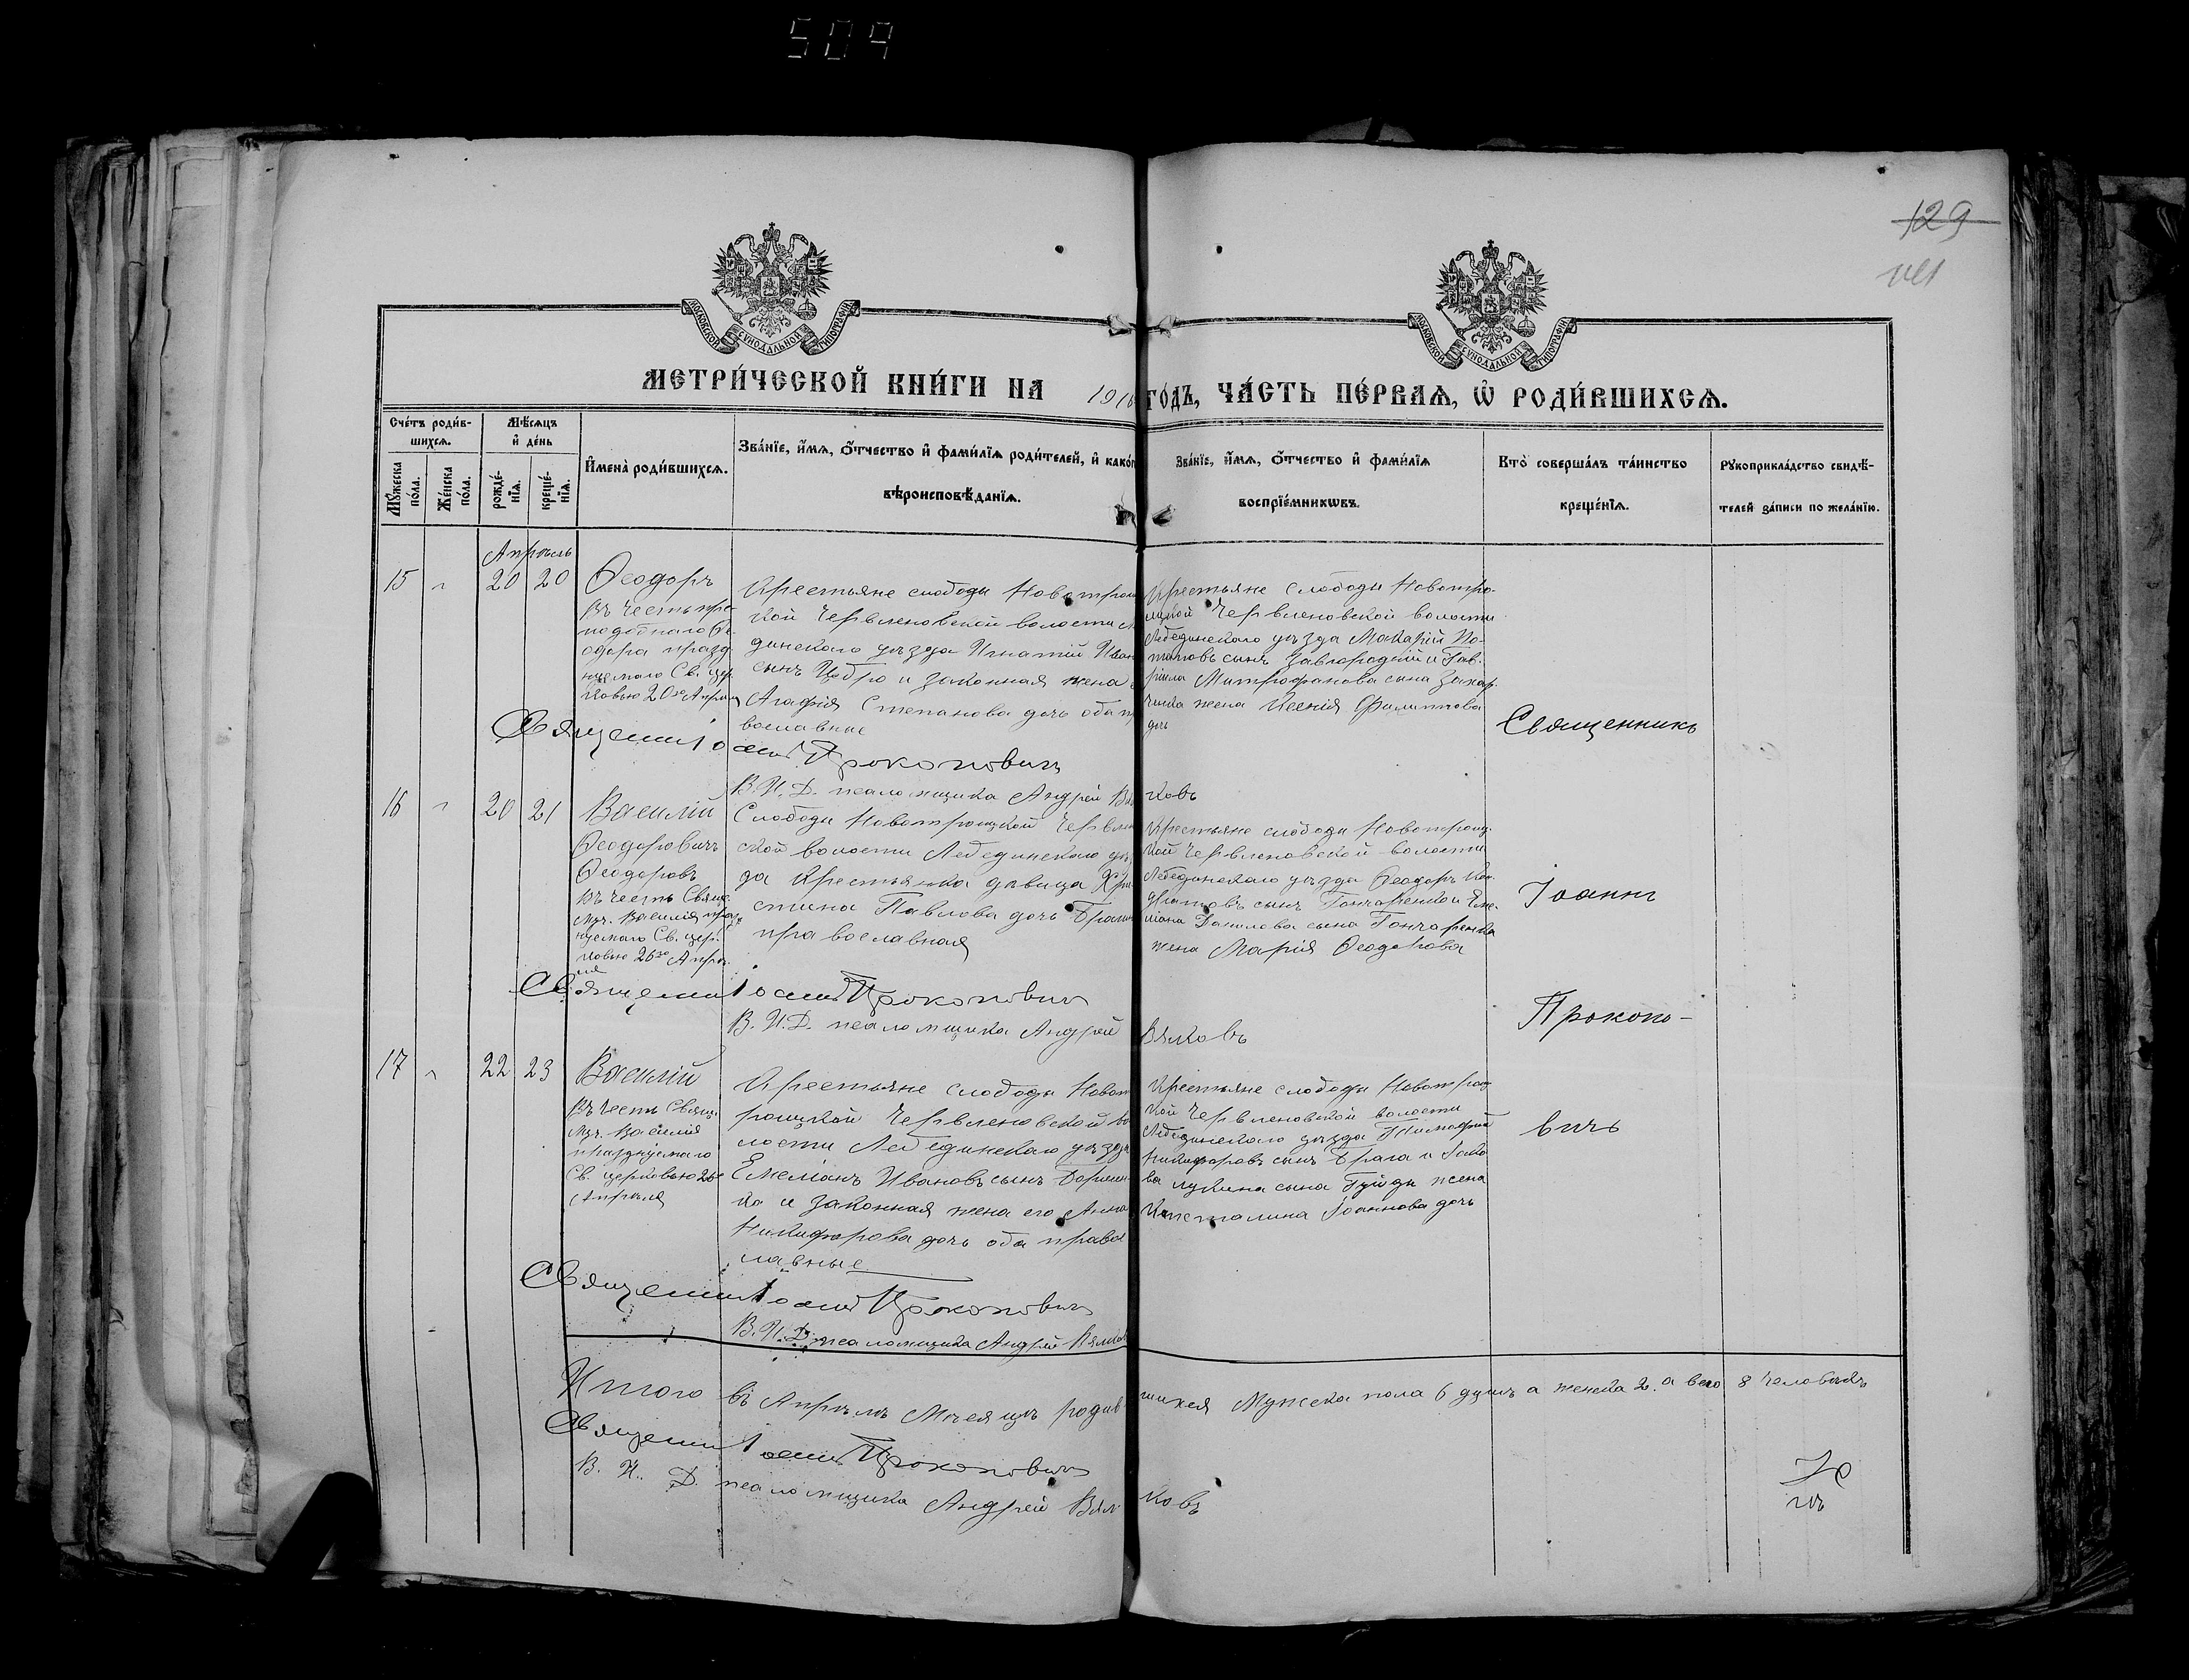 509
129
МОСКОВСКОЙ СѴНОДАЛЬНОЙ ТИПОГРАФІИ
МОСКОВСКОЙ СѴНОДАЛЬНОЙ ТИПОГРАФІИ
МЕТРИ́ЧЕСКОЙ КНИ́ГИ НА 191 ГО́ДЪ, ЧА́СТЬ ПЕ́РВАѦ, Ѡ РОДИ́ВШИХСѦ.
Сче́тъ роди́в-
шихсѧ.
Мꙋжеска по́ла.
Же́нска по́ла.
Мѣ́сѧцъ и҆ де́нь
рожде́-
нїѧ.
креще́-
нїѧ.
И҆мена̀ роди́вшихсѧ.
Зва́нїе, и҆́мѧ, о҆́тчество и҆ фами́лїѧ роди́телей, и҆ како́г
вѣроисповѣ́данїѧ.
Зва́нїе, и҆́мѧ, о҆́тчество и҆ фами́лїѧ
воспрїе́мникѡвъ.
Кто̀ соверша́лъ та́инство
креще́нїѧ.
Рꙋкоприкла́дство свидѣ́-
телей за́писи по жела́нїю.
Апрѣль
15 " 20 20 Ѳеодоръ
Въ честь пре-
подобнаго Ѳе-
одора празд-
нуемаго Св. цер-
ковью 20го Апрѣля
Крестьяне слободы Новотроиц
кой Червленовской волости Л
динскаго уѣзда Игнатій Иван
сынъ и законная жена е
Агафія Степанова дочь оба пр
вославные
Крестьяне слободы Новотро-
ицкой Червленовской волости
Лебединскаго уѣзда Макарій По-
таповъ сынъ Завгородній и Гав-
ріила Митрофанова сына Захар-
ченка жена Ксенія Филиппова
дочь
Священникъ
Священникъ Іоаннъ Прокоповичъ
В. И. Д. псаломщика Андрей Вялковъ
16 " 20 21 Василій
Ѳеодоровичъ
Ѳеодоровъ
Въ честь Свящ.
Муч. Василія праз-
нуемаго Св. цер-
ковью 26го Апрѣ-
ля
Слободы Новотроицкой Червлен
ской волости Лебединскаго уѣз
да крестьянка дѣвица Хри
стина Павлова дочь
православная
Крестьяне слободы Новотроиц-
кой Червленовской волости
Лебединскаго уѣзда Ѳеодоръ Кон-
дратовъ сынъ Гончаренко и Еме-
ліана Данилова сына Гончаренка
жена Марія Ѳеодорова
Іоаннъ
Священникъ Іоаннъ Прокоповичъ
В. И. Д. псаломщика Андрей Вялковъ
Прокопо-
17 " 22 23 Василій
Въ честь Свящ.
Муч. Василія
празднуемаго
Св. церковью 26го
Апрѣля
Крестьяне слободы Новот
роицкой Червленовской во
лости Лебединскаго уѣзда
Емеліанъ Ивановъ сынъ
ко и законная жена его Анна
Никифорова дочь оба право
славные
Крестьяне слободы Новотроиц
кой Червленовской волости
Лебединскаго уѣзда Тимофей
Никифоровъ сынъ Брага и Іако
ва Лукина сына жена
Іоаннова дочь
вичъ
Священникъ Іоаннъ Прокоповичъ
В. И. Д. псаломщика Андрей Вялков
Итого въ Апрѣлѣ Мѣсяцѣ родившихся Мужеска пола 6 душъ а женска 2. а всего 8 человѣкъ
Священникъ Іоаннъ Прокоповичъ
В. И. Д. псаломщика Андрей Вялковъ